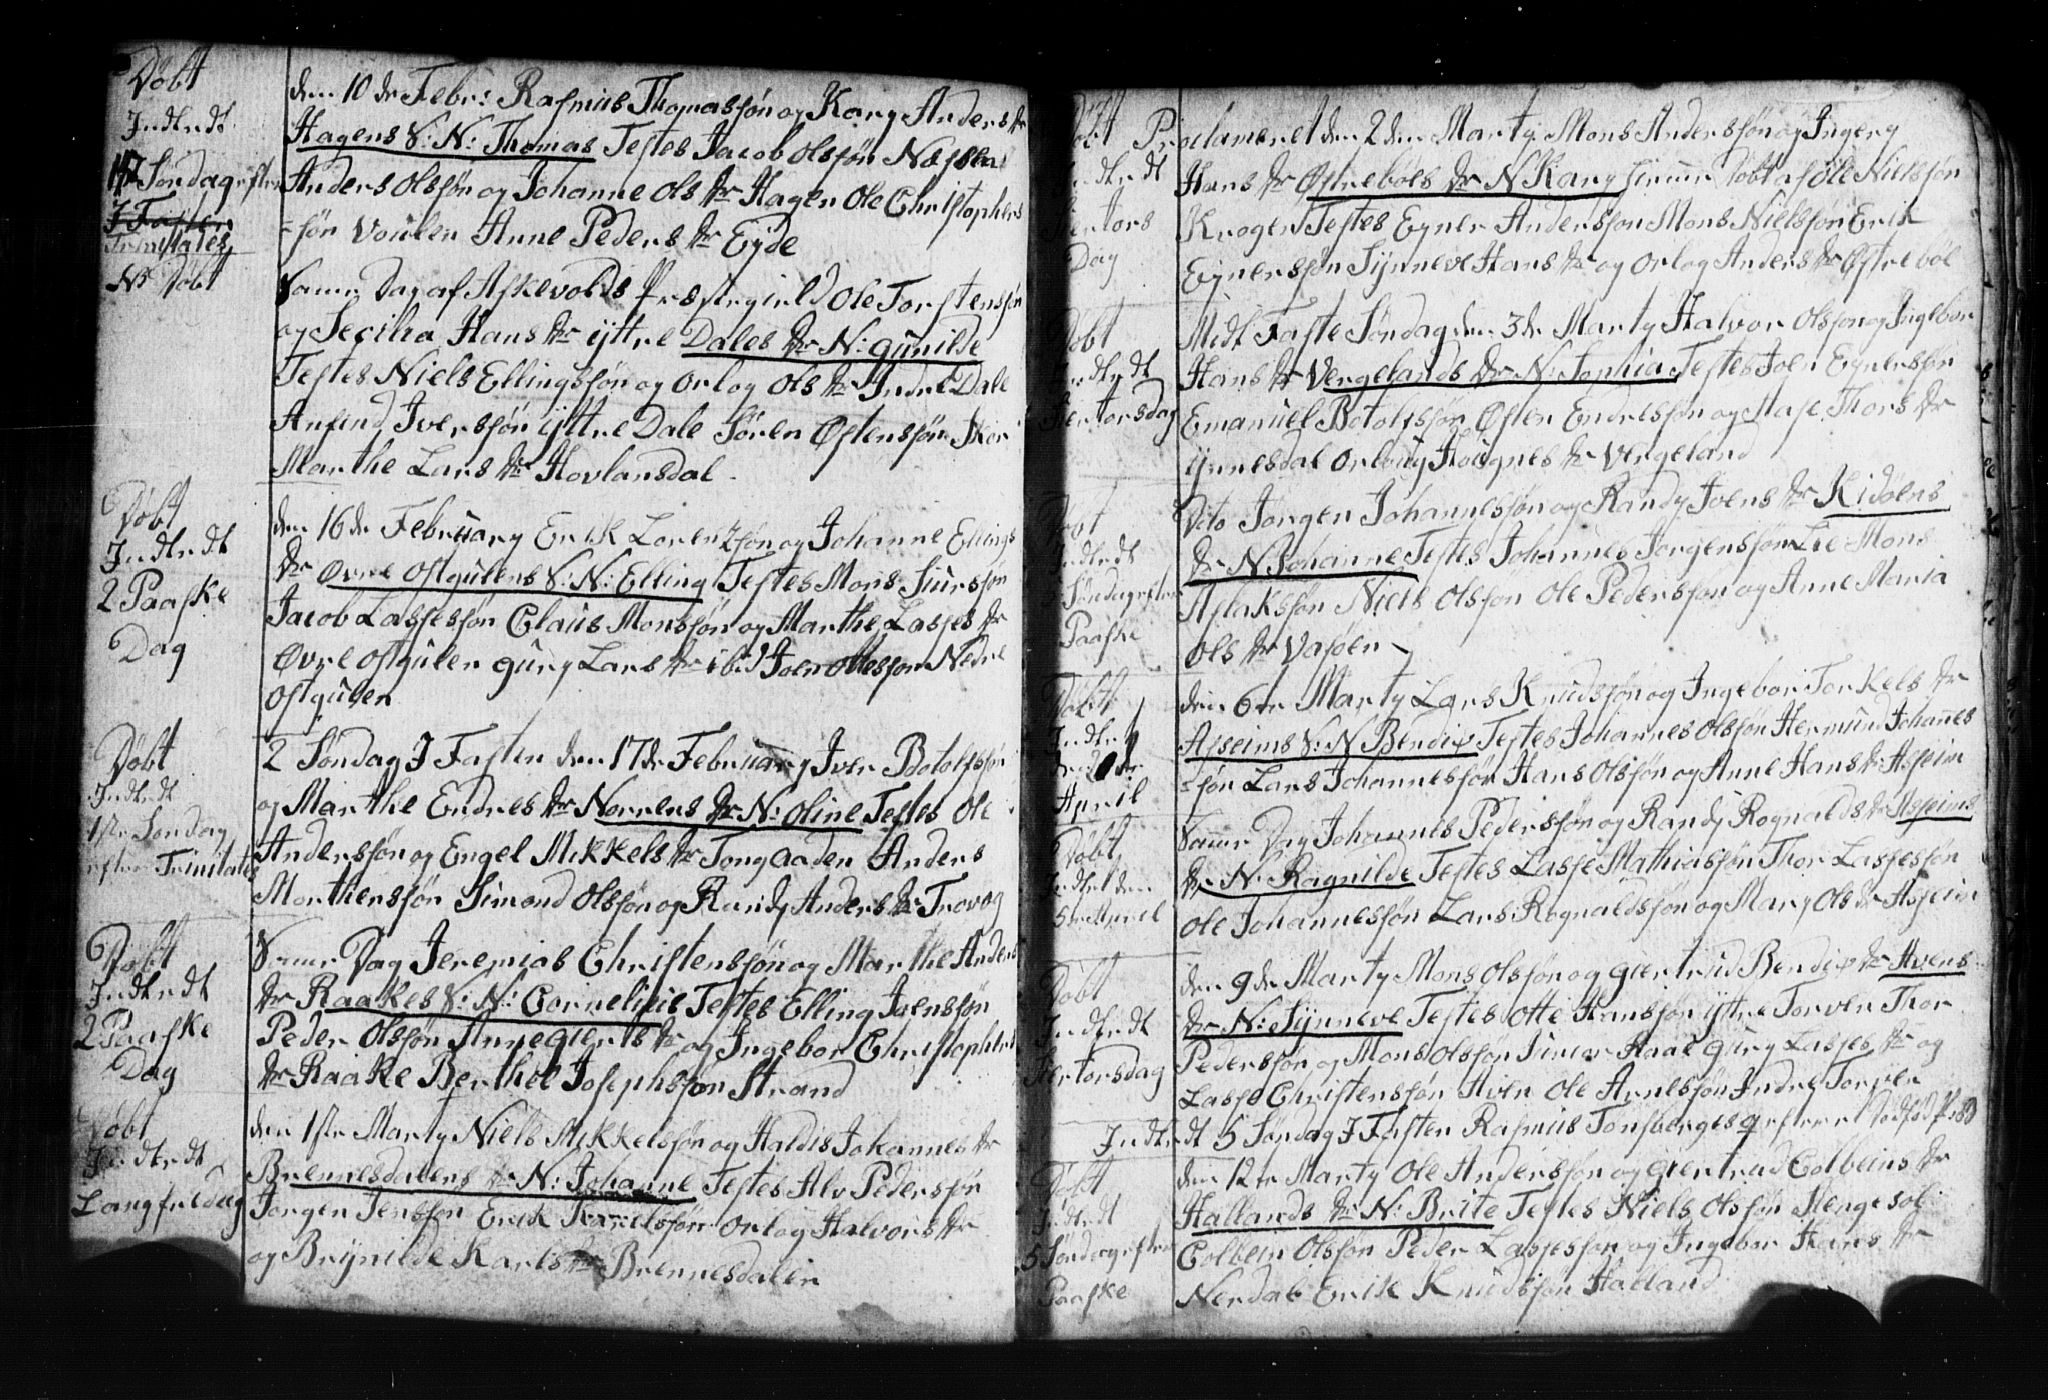 Døbt
Indtrdt
Søndag efter
Trinitatis
NB Døbt
den 10 de Febr: Rasmus Thomassøn og Kary Anders dr
Hagens S: N: Thomas Testes Jacob Olssøn
Anders Olssøn og Johanne Ols dr Hagen Ole Christophers
=søn Voulen Anne Peders dr Eyde
Samme Dag af Askevolds Præstegield Ole Torstensøn
og Secilia Hans dr ÿttre Dales dr N: Gunilde
Testes Niels Ellingssøn og Orlog Ols dr Indre Dale
Anfind Iverssøn ÿttre Dale Søren Østenssøn
Marthe Lars dr Hovlansdal
Døbt
Indtrdt
2 Paaske
Dag
den 16 de February Erik Lorentzsøn og Johanne Ellings
dr Øvre Ostgulens S: N: Elling Testes Mons Siurssøn
Jacob Lassessøn Claus Monssøn og Marthe Lasses dr
Øvre Ostgulen Gury Lars dr ibid Joen Ottessøn Nedre
Ostgulen
Døbt
Indtrdt
1ste Søndag
efter Trinitatis
2 Søndag I Fasten den 17 de February Iver Botolfssøn
og Marthe Endres dr Norrens dr N: Oline Testes Ole
Anderssøn og Engel Mikkels dr Tongaaden Anders
Morthenssøn Simond Olssøn og Randj Anders dr Trovog
Døbt
Indtrdt
2 Paaske
Dag
Samme Dag Jeremias Christenssøn og Marthe Anders
dr Raakes S: N: Cornelius Testes Elling Joenssøn
Peder Olssøn Anne Gierts dr og Ingebor Christophers
dr Raake Berthel Josephssøn Strand
Døbt
Indtrdt
Langfredag
den 1ste Marty Niels Mikkelssøn og Haldis Johannes dr
Brennesdalens dr N: Johanne Testes Alv Pederssøn
Jørgen Jenssøn Erik Orlog Halvors dr
og Brÿnilde Karls dr Brennesdalen
Døbt
Indtrdt
Skertors
Dag
Proclameret den 2 den Marty Mons Anderssøn og Ingery
Hans dr Østrebøes dr N Kary hiemme Døbt af Ole Nielssøn
Krogen Testes Egner Anderssøn Mons Nielssøn Erik
Egnerssøn Sÿnneve Hans dr og Orlog Anders dr Østrebøe
Døbt
Indtrdt
Skertorsdag
Midt Faste Søndag den 3 de Marty Halvor Olssøn og Ingebor
Hans dr Vergelands dr N: Sophia Testes Joen Egnerssøn
Emanuel Botolfssøn Østen Endressøn og Aase Thors dr
ÿnnesdal Orloug Hougnes dr Vergeland
Døbt
Indtrdt
Søndag efter
Paaske
Dito Jørgen Johannessøn og Randj Joens dr Kidøens
dr N Johanne Testes Johannes Jørgenssøn Lie Mons
Aslakssøn Niels Olssøn Ole Pederssøn og Anne Maria
Ols dr Vasøen
Døbt
Indtrdt
April
den 6 te Marty Lars Knudssøn og Ingebor Torkels dr
Asseims S: N Bendix Testes Johannes Olssøn Hermund Johannes
=søn Lars Johannessøn Hans Olssøn og Anne Hans dr Asseim
Døbt
Indtrt den
5 te April
Samme Dag Johannes Pederssøn og Randj Rognalds dr Asseims
dr N: Ragnilde Testes Lasse Mathiassøn Thor Lassessøn
Ole Johannessøn Lars Rognaldssøn og Mary Ols dr Asseim
Døbt
Indtrdt
Skertorsdag
den 9 de Marty Mons Olssøn og Giertrud Bendix dr Hvens
dr N: Sÿnneve Testes Otte Hanssøn ÿttre Torven Thor
Pederssøn og Mons Olssøn Gury Lasses dr og
Lasse Christenssøn Hven Ole Arnessøn Indre Torven
Indtrdt 5 Søndag I Fasten Rasmus Tonsberges Dødfød
Døbt
Indtrdt
5 Søndag efter
Paaske
den 12 te Marty Ole Anderssøn og Giertrud Colbeins dr
Hallands dr N: Brite Testes Niels Olssøn
Colbein Olssøn Peder Lassessøn og Ingebor Hans dr
Nerdal Erik Knudssøn Halland